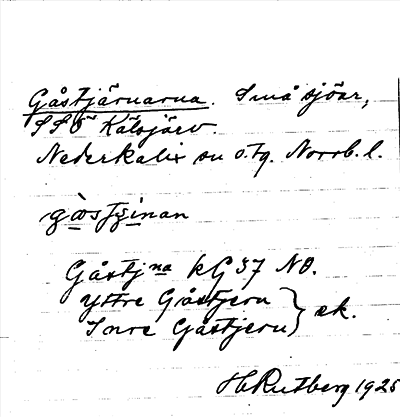 Gåstjärnarna. Små sjöar,
SSO Kälsjärv.
Nederkalix sn o. tg. Norrb. l.
Gåstjna kG 37 NO.
Yttre Gåstjern } ek.
Inre Gåstjern
H Rutberg 1925